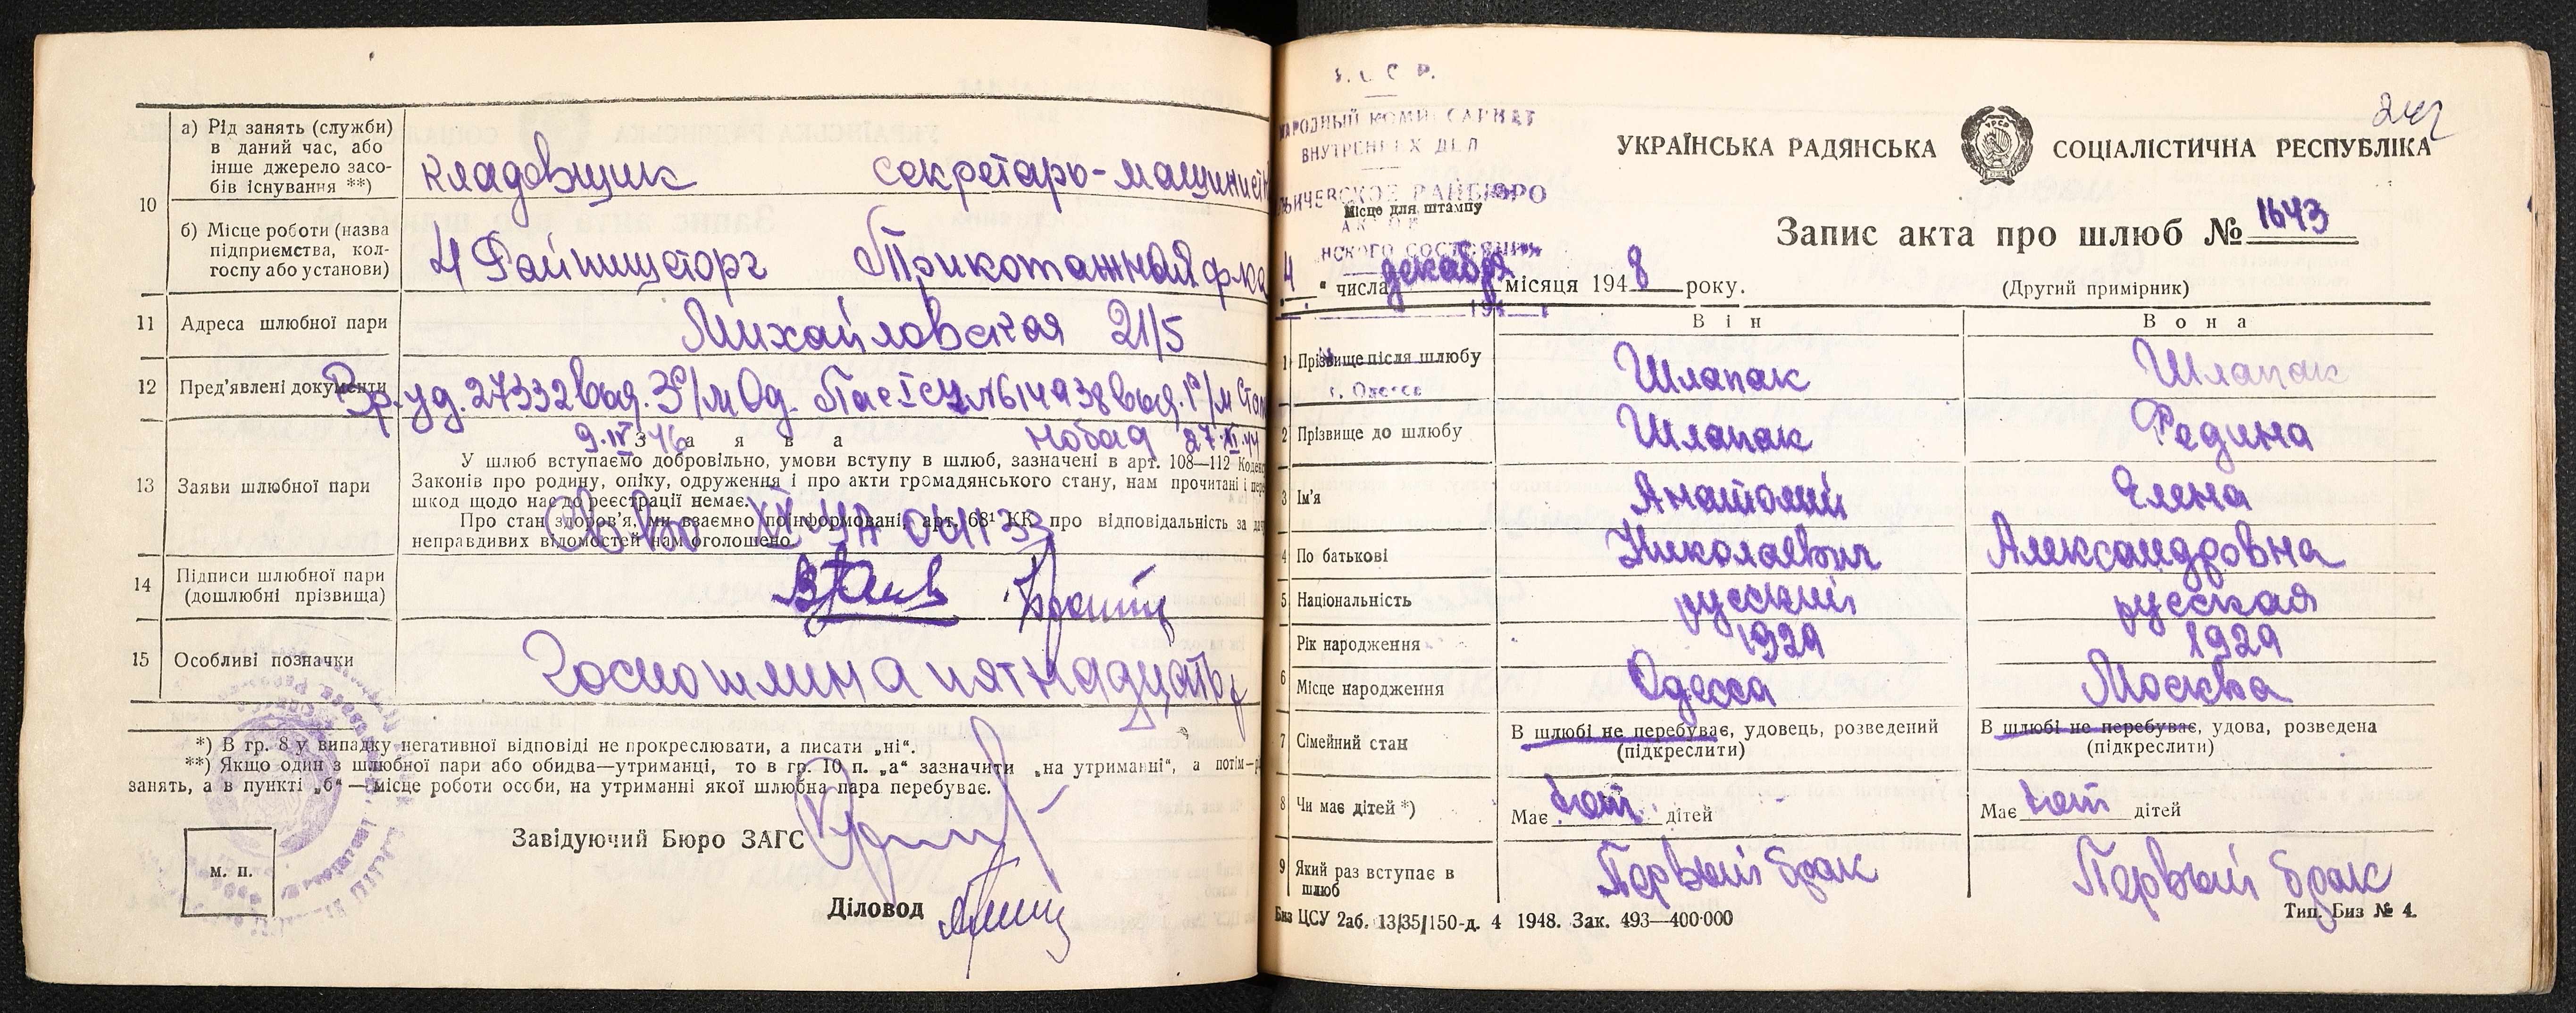 а) Рід занять (служби)
в даний час, або
інше джерело засо-
бів існування **)
кладовщик секретарь-машинист
10
б) Місце роботи (назва
підприємства, кол-
госпу або установи)
4 Райпищеторг Трикотажная ф-ка
11 Адреса шлюбної пари Михайловская 21/5
12 Пред'явлені документи Вр. уд. 27332 выд. 3 о/м Од. Пас I 614938 выд. 1 о/м
9.IV 46 27.XI.44
З а я в а
У шлюб вступаємо добровільно, умови вступу в шлюб, зазначені в арт. 108—112 Кодекс
13 Заяви шлюбної пари
Законів про родину, опіку, одруження і про акти громадянського стану, нам прочитані і пере
шкод щодо нас до реєстрації немає.
Про стан здоров'я, ми взаємно поінформовані, арт. 68¹ КК про відповідальність за
неправдивих відомостей нам оголошено.
14 Підписи шлюбної пари
(дошлюбні прізвища)
15 Особливі позначки Госпошлина пятнадцать р
*) В гр. 8 у випадку негативної відповіді не прокреслювати, а писати „ні“.
**) Якщо один з шлюбної пари або обидва—утриманці, то в гр. 10 п. „а“ зазначити „на утриманні“, а потім—р
занять, а в пункті „б“—місце роботи особи, на утриманні якої шлюбна пара перебуває.
Завідуючий Бюро ЗАГС
м. п.
Діловод
У. С С Р.
НАРОДНЫЙ КОМИССАРИАТ
ВНУТРЕННИХ ДЕЛ
ИЧЕВСКОЕ РАЙБЮРО
Місце для штампу
АКТОВ
НСКОГО СОСТОЯНИЯ
194 г
г. Одесса
242
УКРАЇНСЬКА РАДЯНСЬКА СОЦІАЛІСТИЧНА РЕСПУБЛІКА
УРСР
Запис акта про шлюб № 1643
4 " числа декабря місяця 1948 року.
(Другий примірник)
Він Вона
1 Прізвище після шлюбу Шлапак Шлапак
2 Прізвище до шлюбу Шлапак Редина
3 Ім'я Анатолий Елена
4 По батькові Николаевич Александровна
5 Національність русский русская
Рік народження 1924 1924
6
Місце народження Одесса Москва
7 Сімейний стан В шлюбі не перебуває, удовець, розведений В шлюбі не перебуває, удова, розведена
(підкреслити) (підкреслити)
8 Чи має дітей *) Має нет дітей Має нет дітей
9 Який раз вступає в
шлюб
Первый брак Первый брак
Биз ЦСУ 2аб. 13/35/150-д. 4 1948. Зак. 493—400·000 Тип. Биз № 4.